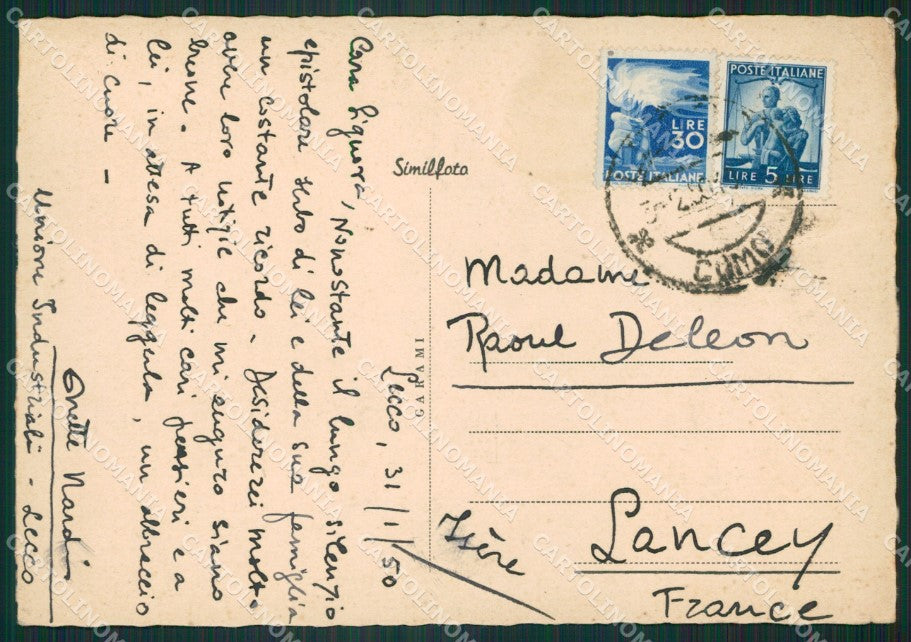 Lecco, 31/1/50
Cara Signora, Nonostante il lungo silenzio
epistolare serbo di lei e della sua famiglia
un costante ricordo. Desidererei molto
avere loro notizie che mi auguro siano
buone. A tutti molti cari pensieri e a
lei, in attesa di leggerla, un abbraccio
di cuore -
Nardi
Unione Industriali - Lecco
Similfoto
IMAGAM
LIRE
30
POSTE ITALIANE
POSTE ITALIANE
LIRE 5 LIRE
COMO
Madame
Raoul Deleon
Lancey
Isère
France
CARTOLINOMANIA